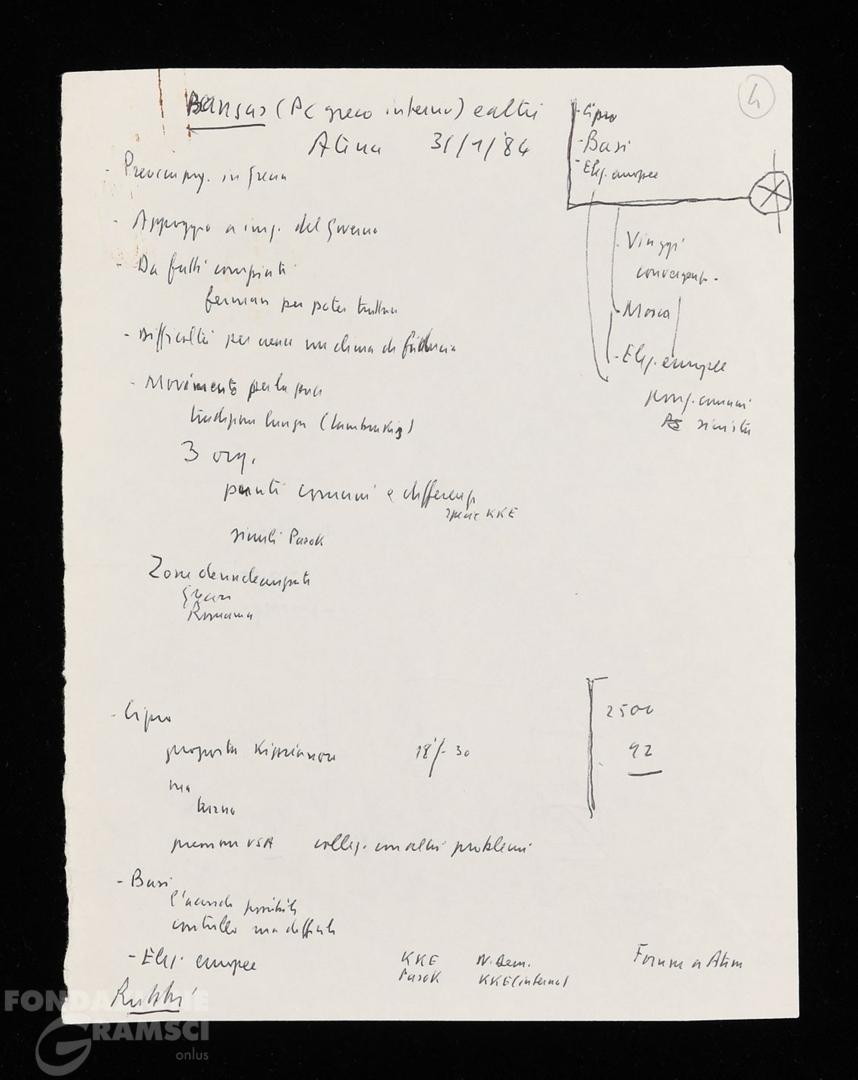 4
Bansas (PC greco interno) e altri
Atene 31/1/'84
- Cipro
- Basi
- Elez. europee
- Preoccupaz. in Grecia
- Appoggio a iniz. del governo
- Da fatti compiuti
fermarsi per poter trattare
- Difficoltà per creare un clima di fiducia
- Movimento per la pace
tradizione lunga (Lambrakis)
3 org.
punti comuni e differenze
specie KKE
simili Pasok
Zone denuclearizzate
Grecia
Romania
- Viaggi
convergenze
- Mosca
- Elez. europee
comuni
sinistra
- Cipro
proposta Kiprianou 18%-30
ma
pressioni USA colleg. con altri problemi
2500
92
- Basi
controllo ma difficile
- Elez. europee
KKE N. Dem.
Pasok KKE (interno)
Forum a Atene
Rubbi
FONDAZIONE
GRAMSCI
onlus